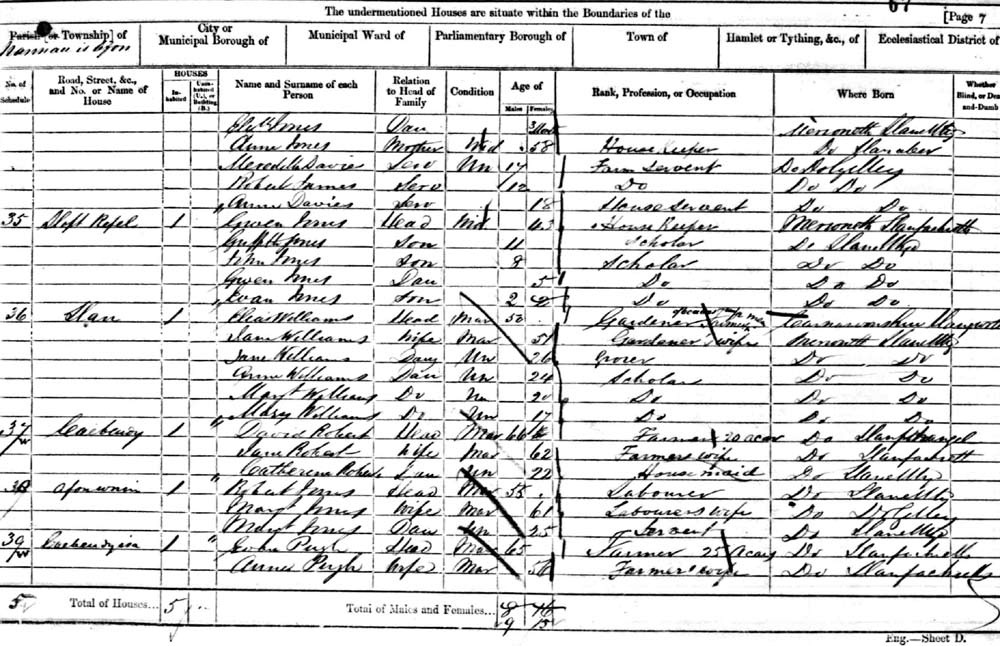 The undermentioned Houses are situate within the Boundaries of the
67
[Page 7
Parish [or Township] of
City or Municipal Borough of
Municipal Ward of
Parliamentary Borough of
Town of
Hamlet or Tything, &c., of
Ecclesiastical District of
No. of Schedule
Road, Street, &c., and No. or Name of House
HOUSES
In-habited
Unin-habited (U.), or Building (B.)
Name and Surname of each Person
Relation to Head of Family
Condition
Age of
Males
Females
Rank, Profession, or Occupation
Where Born
Whether Blind, or Deaf-and-Dumb
Jones Dau Merioneth Llanelltyd
Anne Jones Mother Wid 58 House Keeper Do
Meredith Davies Serv Un 17 Farm Servent Do Dolgelley
Robert James Serv 12 Do Do Do
Anne Davies Serv 18 House Servent Do Do
35 1 Gwen Jones Head 43 House Keeper Merioneth Llanfachreth
Griffith Jones Son 11 Scholar Do Llanelltyd
John Jones Son 8 Scholar Do Do
Gwen Jones Dau 5 Do Do Do
Evan Jones Son 2 Do Do Do
36 Llan 1 Williams Head Mar 50 Gardener Carnarvonshire
Jane Williams Wife Mar 51 Gardener's wife Merioneth Llanelltyd
Jane Williams Daug Un 26 Grocer Do Do
Anne Williams Dau Un 24 Scholar Do Do
Margt Williams Do Un 20 Do Do Do
Mary Williams Do Un 17 Do Do Do
37 1 David Robert Head Mar 66 Farmer 20 acres Do Llanfihangel
Jane Robert Wife Mar 62 Farmers wife Do Llanfachreth
Catherine Robert Dau Un 22 House maid Do Llanelltyd
38 1 Robert Jones Head Mar 55 Labourer Do Llanelltyd
Margt Jones Wife Mar 61 Labourers wife Do Dolgelley
Margt Jones Dau Un 25 Servent Do Llanelltyd
39 1 John Pugh Head Mar 65 Farmer 25 Acres Do Llanfachreth
Anne Pugh Wife Mar Farmer's wife Do Llanfachreth
5 Total of Houses... 5 Total of Males and Females... 8 16
9 15
Eng.—Sheet D.